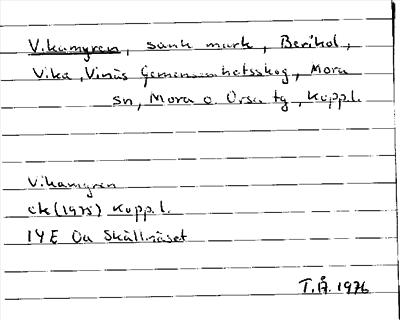 Vikamyren, sank mark, Berihol,
Vika, Vinäs Gemensamhetsskog, Mora
sn, Mora o. Orsa tg, Koppl.
Vikamyren
ek (1975) Koppl.
14 E Oa Skällnäset
T.Å. 1976